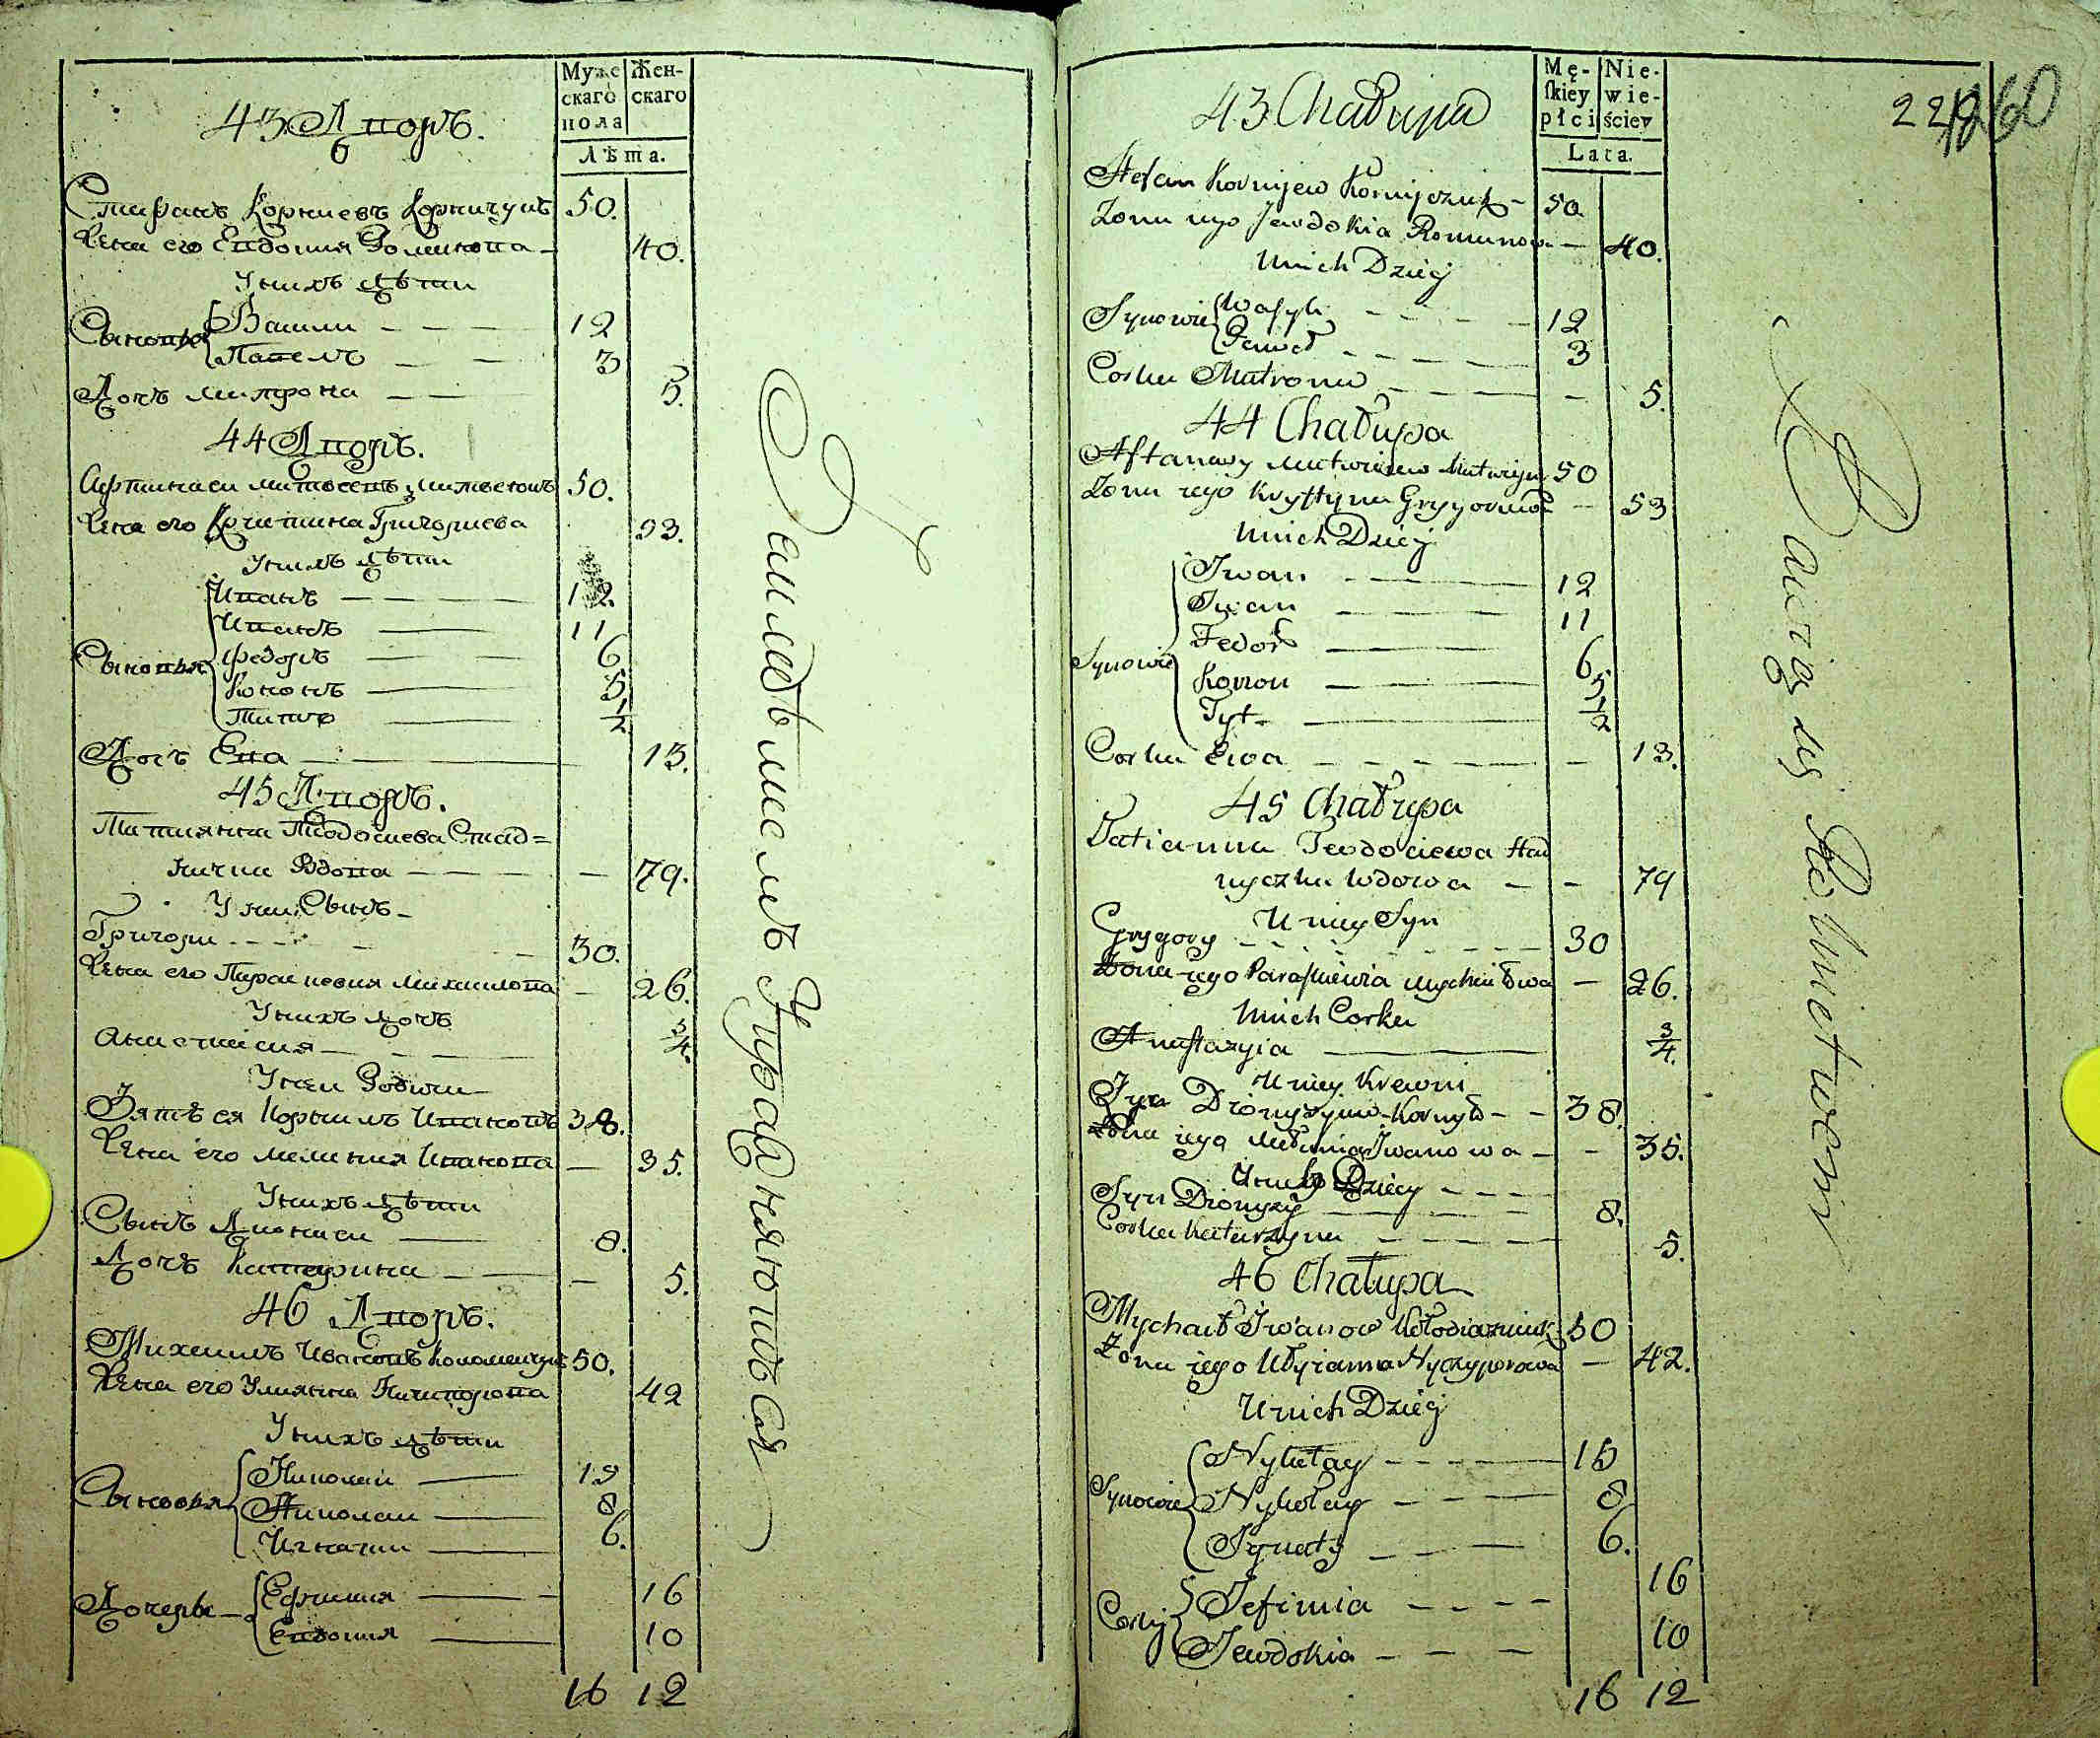 Муже
скаго
пола
Жен-
скаго
Лѣта.
43 Дворъ.
Стифанъ Корниевъ Корничукъ 50.
Жена его Евдокия Романова - 40.
У нихъ дѣти
Сыновья
Василий - - - 12
Павелъ - - 3
Дочъ Матрона - - 5.
44 Дворъ.
Афтанаси Матвеевъ 50.
Жена его Кристина Григориева 53.
У нихъ дѣти
Иванъ 12.
Иванъ 11
Сыновья
Федоръ 6
Кононъ 5
Титъ 1/2
Дочъ Ева 13.
45 Дворъ.
Татиянна Теодосиева Стад=
ничка Вдова - - - - 79.
У ней Сынъ -
Григори - - - 30.
Жена его Параскевия Михаилова - 26.
У нихъ дочъ
Анастасия - - 3/4.
У ней Родичи
Зять ея Корнилъ Ивановъ 38.
Жена его Мелания Ивановна - 35.
У нихъ дѣти
Сынъ Диониси 8.
Дочъ Катерина - - 5.
46 Дворъ.
Михаилъ Ивановъ 50.
Жена его Улиянна Ничипорова 42
У нихъ дѣти
Николай 15
Сыновья
Николай 8
Игнатии 6.
Дочеры
Ефимия 16
Евдокия 10
16 12
Земледѣлиемъ Упражняютъся
Mę-
skiey
płci
Nie-
wie-
ściey
Lata.
22
60
43 Chałupa
Stefan Kornijew Kornijczuk - 50
Żona iego Jewdokia Romanowa - 40.
U nich Dzieci
Synowie
Wasyli - - - - 12
Paweł - - - - 3
Corka Matrona - - - - 5.
44 Chałupa
Aftanasy Matwiiew 50
Żona iego Krystyna Gregorowa - 53
U nich Dzieci
Iwan 12
Iwan 11
Fedor 6
Synowie
Konon 5
Tyt 1/2
Corka Ewa - - - - 13.
45 Chałupa
Tatianna Teodociewa Stad
nyczka Wdowa - - 79
U niey Syn
Grygory - - - 30
Żona iego Paraskiewia Mychaiłowa - 26.
U nich Corka
Anastazyia 3/4.
U niey Krewni
Zyn Dionyzyiew Kornyło - - 38.
Żona iego Mełania Iwanowa - - 35.
U nich Dzieci - - -
Syn Dionyzy 8.
Corka Katarzyna - - - - 5.
46 Chałupa
Mychaił Iwanow 50
Żona iego Ulyianna Nyczyporowa - 42.
U nich Dzieci
Nykołay - - - 15
Synowie
Nykołay - - - 8
Ignaty - - - 6.
Corky
Jefimia - - - - 16
Jewdokia - - - 10
16 12
Bawią się Rolnictwem